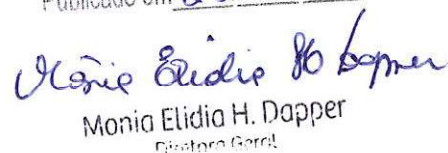 Publicado em
Mônia Elidia H. Dapper
Monia Elidia H. Dapper
Diretora Geral